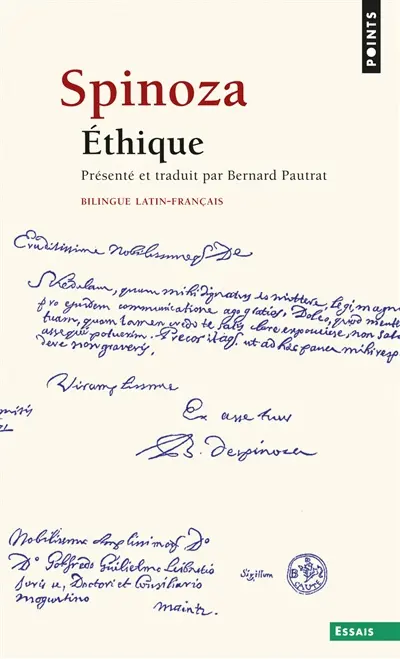 POINTS
Spinoza
Éthique
Présenté et traduit par Bernard Pautrat
BILINGUE LATIN-FRANÇAIS
Eruditissime Nobilissimeq
Schedulam, quam mihi dignatus es mittere, legi, magn
pro ejusdem communicatione ago gratias, Doleo, quod ment
tuam, quam tamen credo te satis clare exposuisse, non sat
assequi potuerim. Precor itaq ut ad hæc pauca mihi resp
dere non graveris,
Vir amplissime
Ex asse tuus
B. despinoza
Nobilissimo Amplissimoq Do
Do Gotfredo Guilielmo Leibnitio
Juris u, Doctori et Consiliario
moguntino
maintz.
Sigillum
ESSAIS